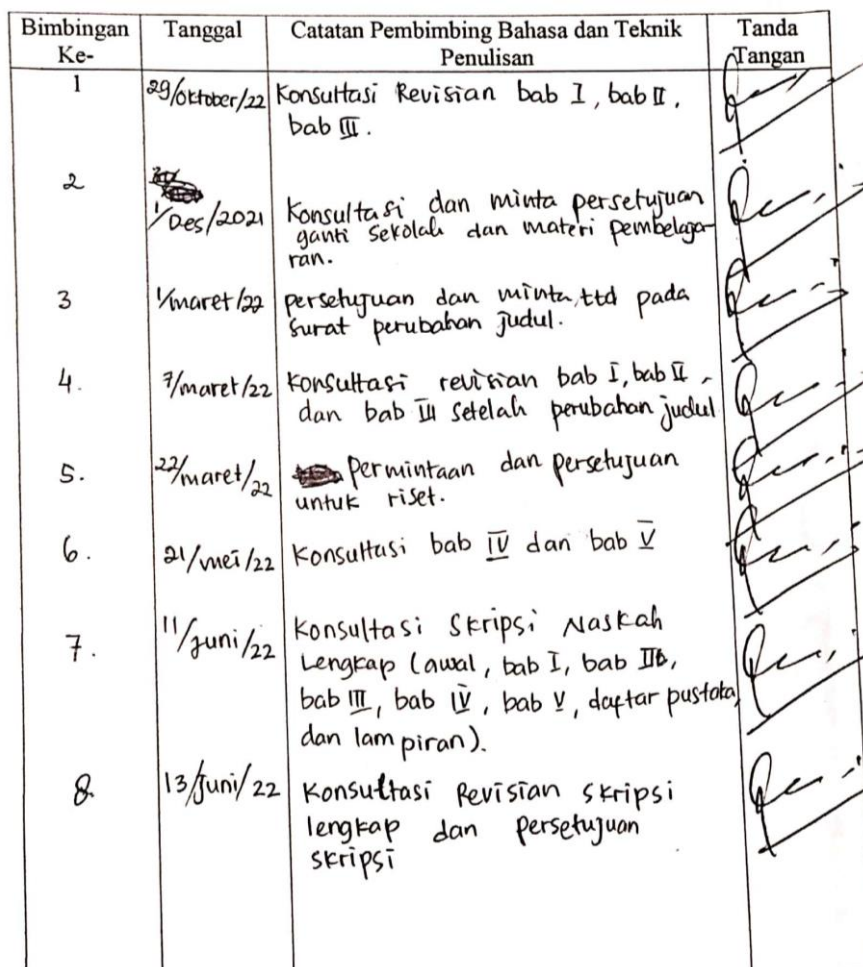 Bimbingan Ke- Tanggal Catatan Pembimbing Bahasa dan Teknik Penulisan Tanda Tangan
1 29/Oktober/22 Konsultasi Revisian bab I, bab II,
bab III.
2 1/Des/2021 Konsultasi dan minta persetujuan
ganti sekolah dan materi pembelaja-
ran.
3 1/maret/22 persetujuan dan minta ttd pada
surat perubahan judul.
4. 7/maret/22 Konsultasi revisian bab I, bab II,
dan bab III setelah perubahan judul
5. 22/maret/22 Permintaan dan persetujuan
untuk riset.
6. 21/mei/22 Konsultasi bab IV dan bab V
7. 11/Juni/22 Konsultasi Skripsi Naskah
Lengkap (awal, bab I, bab II,
bab III, bab IV, bab V, daftar pustaka,
dan lampiran).
8. 13/Juni/22 Konsultasi Revisian skripsi
lengkap dan persetujuan
skripsi